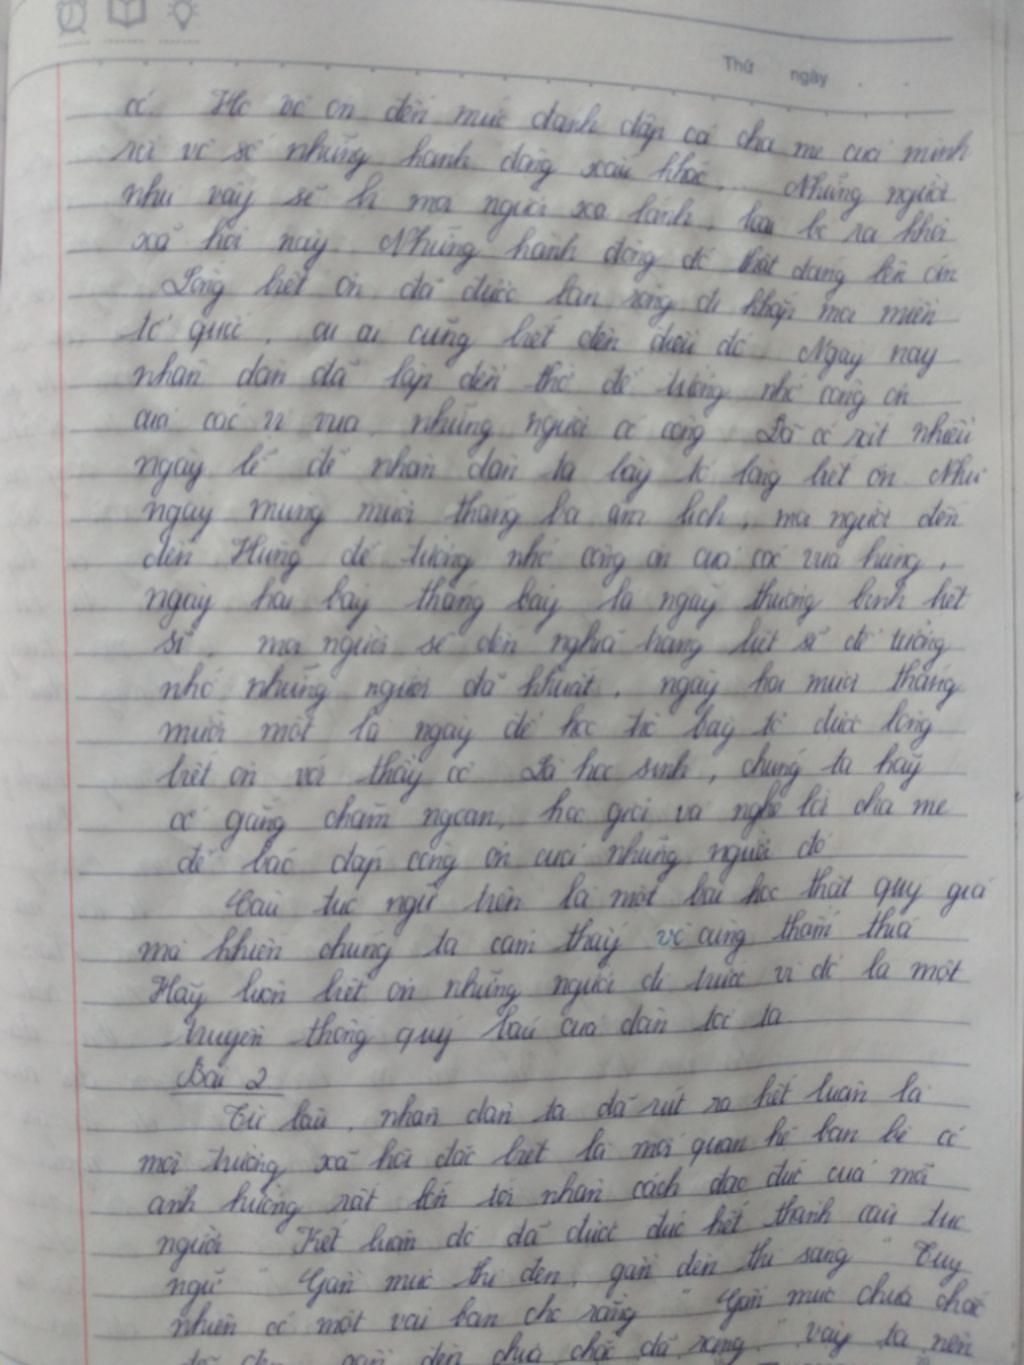 Thứ ngày
cổ. Họ vô ơn đến mức đánh đập cả cha mẹ của mình
rồi vô số những hành động xấu khác... Những người
như vậy sẽ bị mọi người xa lánh, loại bỏ ra khỏi
xã hội này. Những hành động đó thật đáng lên án
Lòng biết ơn đã được lan rộng đi khắp mọi miền
tổ quốc, ai ai cũng biết đến điều đó. Ngày nay
nhân dân đã lập đền thờ để tưởng nhớ công ơn
của các vị vua, những người có công. Đã có rất nhiều
ngày lễ để nhân dân ta bày tỏ lòng biết ơn. Như
ngày mùng mười tháng ba âm lịch, mọi người đến
đền Hùng để tưởng nhớ công ơn của các vua hùng,
ngày hai bảy tháng bảy là ngày thương binh liệt
sĩ, mọi người sẽ đến nghĩa trang liệt sĩ để tưởng
nhớ những người đã khuất, ngày hai mươi tháng
mười một là ngày để học trò bày tỏ được lòng
biết ơn với thầy cô. Là học sinh, chúng ta hãy
cố gắng chăm ngoan, học giỏi và nghe lời cha mẹ
để báo đáp công ơn của những người đó
Câu tục ngữ trên là một bài học thật quý giá
mà khiến chúng ta cảm thấy vô cùng thấm thía
Hãy luôn biết ơn những người đi trước vì đó là một
truyền thống quý báu của dân tộc ta
Bài 2
Từ lâu, nhân dân ta đã rút ra kết luận là
môi trường xã hội đặc biệt là mối quan hệ bạn bè có
ảnh hưởng rất lớn tới nhân cách đạo đức của mỗi
người. Kết luận đó đã được đúc kết thành câu tục
ngữ "Gần mực thì đen, gần đèn thì sáng". Tuy
nhiên có một vài bạn cho rằng "Gần mực chưa chắc
đã đen, gần đèn chưa chắc đã sáng" vậy ta nên